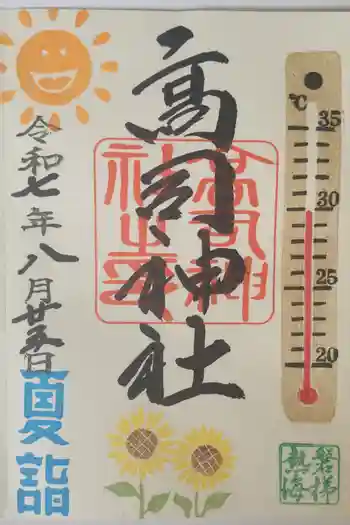 高司神社
高司神社之印
令和七年八月廿五日
夏詣
℃
35
30
25
20
磐梯
熱海